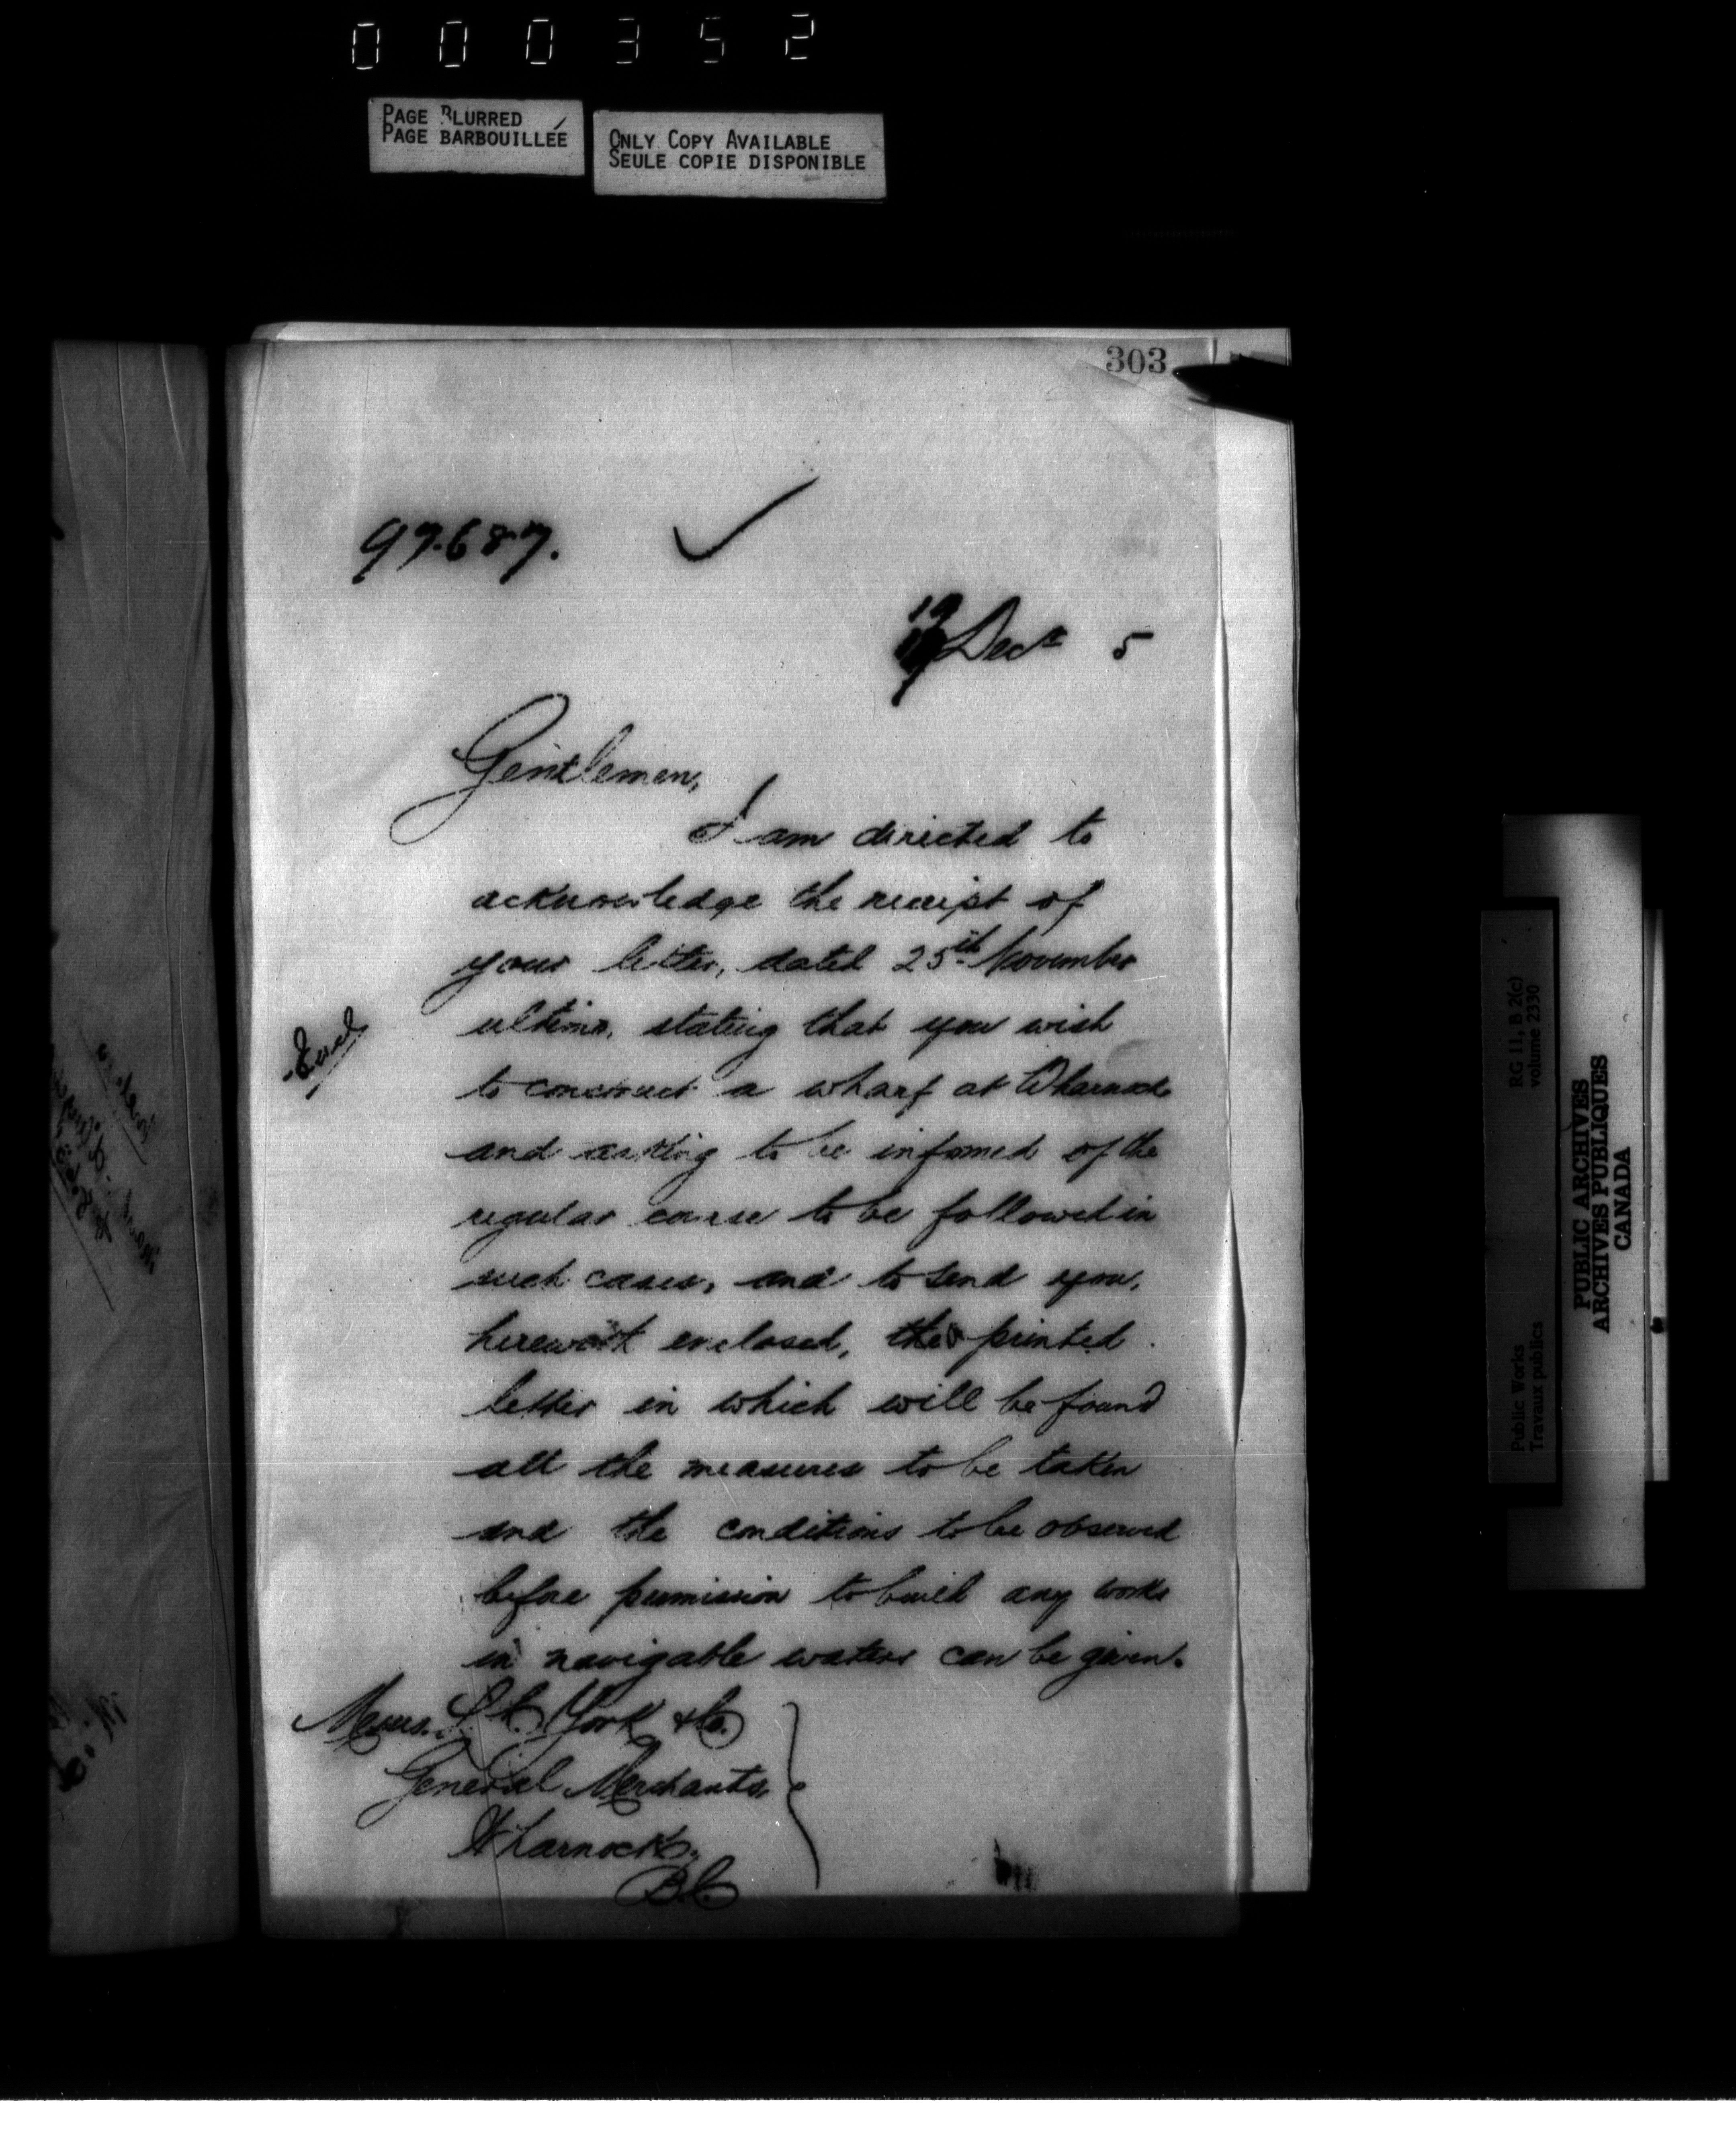 000352
PAGE BLURRED
PAGE BARBOUILLÉE
ONLY COPY AVAILABLE
SEULE COPIE DISPONIBLE
303
97687.
19 Decr 5
Gentlemen,
I am directed to
acknowledge the receipt of
your letter, dated 25th November
ultimo, stating that you wish
Encl
to construct a wharf at Wharnock
and asking to be informed of the
regular course to be followed in
such cases, and to send you,
herewith enclosed, the printed
letter in which will be found
all the measures to be taken
and the conditions to be observed
before permission to build any works
in navigable waters can be given.
Messrs. L. C. York & Co.
General Merchants,
Wharnock,
B.C.
RG 11, B 2(c)
volume 2330
Public Works
Travaux publics
PUBLIC ARCHIVES
ARCHIVES PUBLIQUES
CANADA